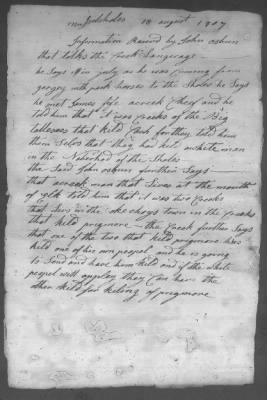 18 august 1807
Information Raised by John osburn
that talks the Creek Languege
he Says in july as he was Coming from
gorgey with pack horses to the Sholes he Says
he met James fife a creek Cheif and he
told him that it was Creeks of the Big
that Keld further told him
them Selvs that they had keld a white man
in the Neberhod of the Sholes
the Said John osburn further Says
that a creek man that Lives at the mouth
of Elk told him it was two Creeks
that Livs in the town in the Creeks
that keld prigmore the Creek further Says
that one of the two that keld prigmore has
keld one of his own peopel and he is going
to Send and have him keld and if the white
peopel will they Can have the
other keld for keling of prigmore